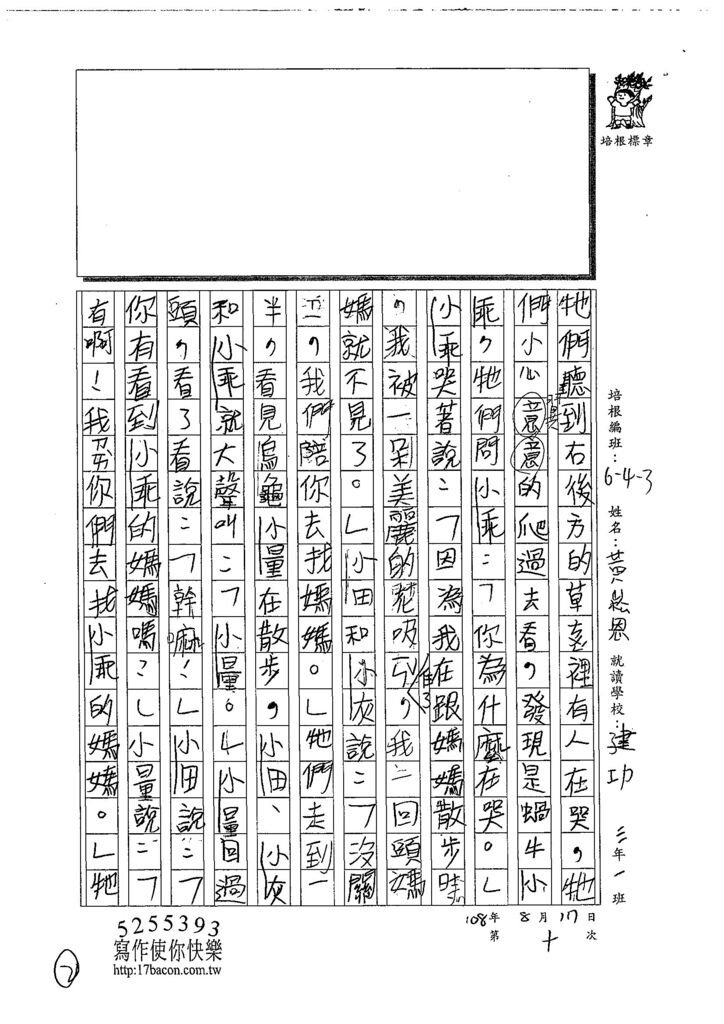 培根標章
培根編班：6-4-3 姓名：黃恩 就讀學校：建功 三年一班
108年8月17日
第十次
牠們聽到右後方的草叢裡有人在哭，牠
們小心翼意意的爬過去看，發現是蝸牛小
乖，牠們問小乖：「你為什麼在哭。」
小乖哭著說：「因為我在跟媽媽散步時
，我被一朵美麗的花吸引住了，我一回頭媽
媽就不見了。」小田和小灰說：「沒關
係，我們陪你去找媽媽。」牠們走到一
半，看見烏龜小量在散步，小田、小灰
和小乖就大聲叫：「小量。」小量回過
頭，看了看說：「幹嘛！」小田說：「
你有看到小乖的媽媽嗎？」小量說：「
有啊！我帶你們去找小乖的媽媽。」牠
5255393
寫作使你快樂
http:17bacon.com.tw
2